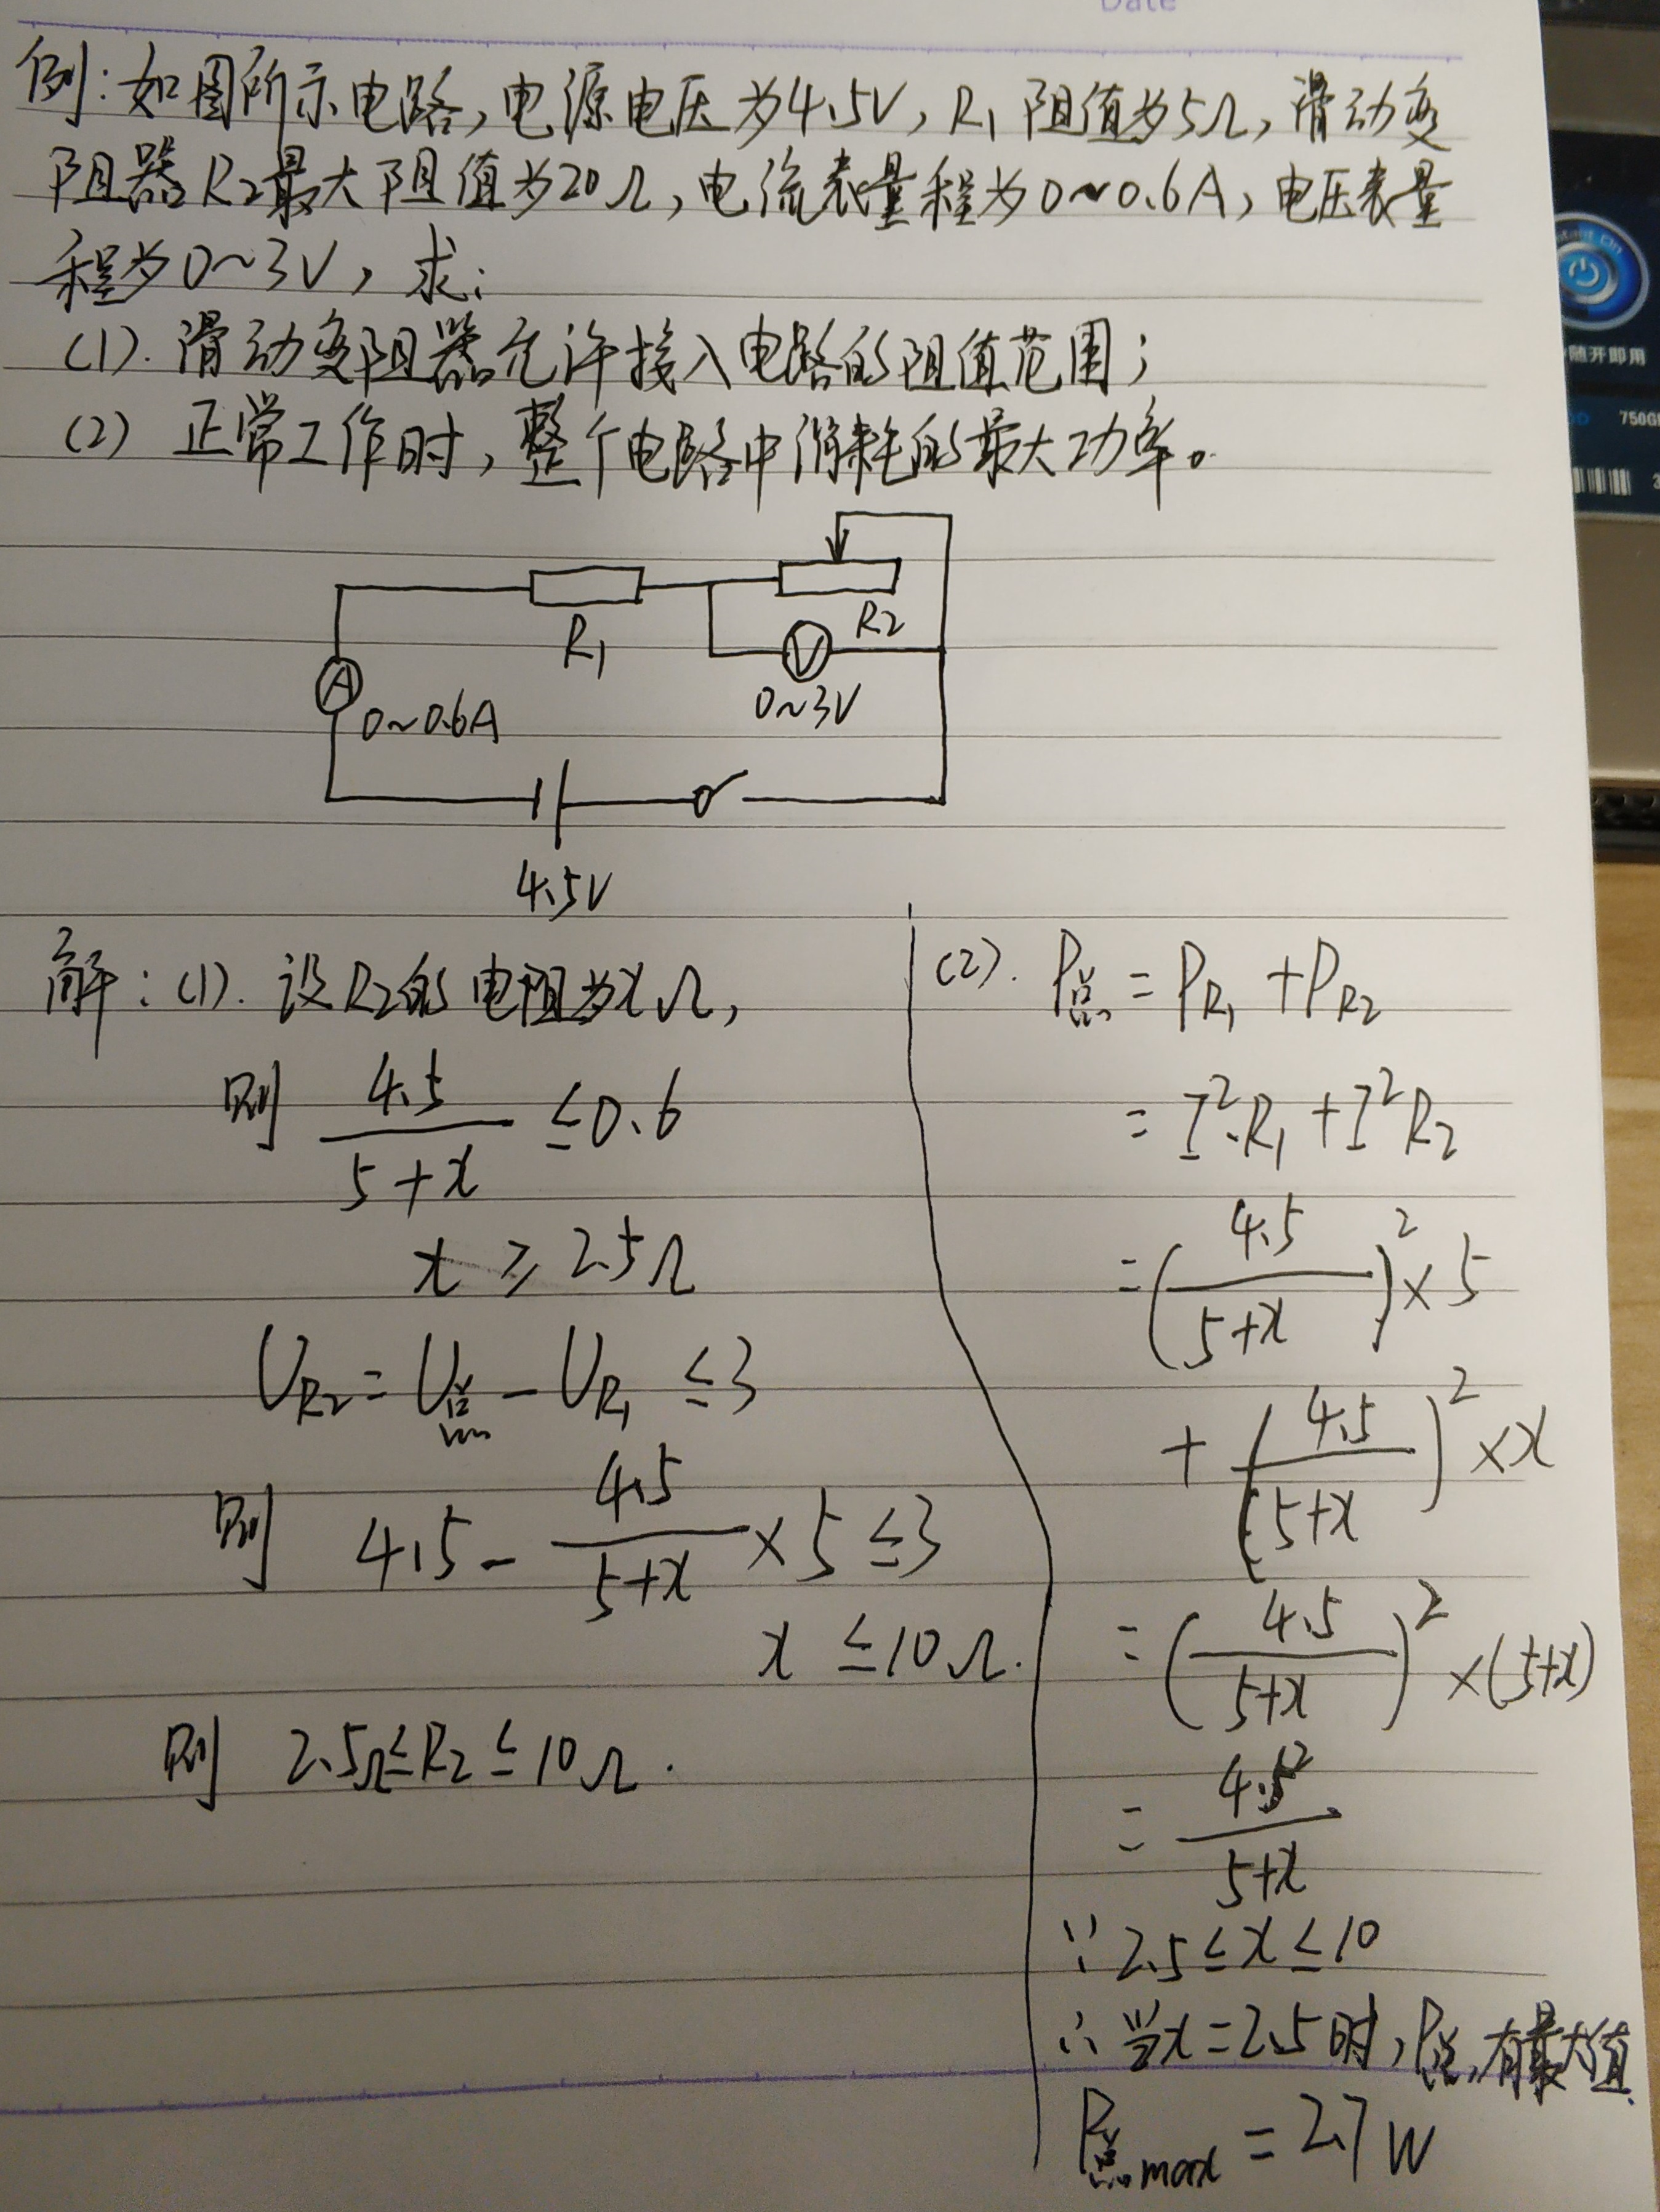 Date
例:如图所示电路,电源电压为4.5V,R₁阻值为5Ω,滑动变
阻器R₂最大阻值为20Ω,电流表量程为0~0.6A,电压表量
程为0~3V,求:
(1).滑动变阻器允许接入电路的阻值范围;
(2) 正常工作时,整个电路中消耗的最大功率。
R₁
R₂
V
0~3V
A
0~0.6A
4.5V
解:(1).设R₂的电阻为xΩ,
则 4.5/(5+x) ≤0.6
x ≥ 2.5Ω
U_R₂=U总-U_R₁ ≤3
则 4.5-4.5/(5+x)×5≤3
x ≤10Ω.
则 2.5Ω≤R₂≤10Ω.
(2). P总=P_R₁+P_R₂
=I²·R₁+I²R₂
=(4.5/(5+x))²×5
+(4.5/(5+x))²×x
=(4.5/(5+x))²×(5+x)
=4.5²/(5+x)
∵2.5≤x≤10
∴当x=2.5时,P总有最大值.
P总max=2.7W
随开即用
750G